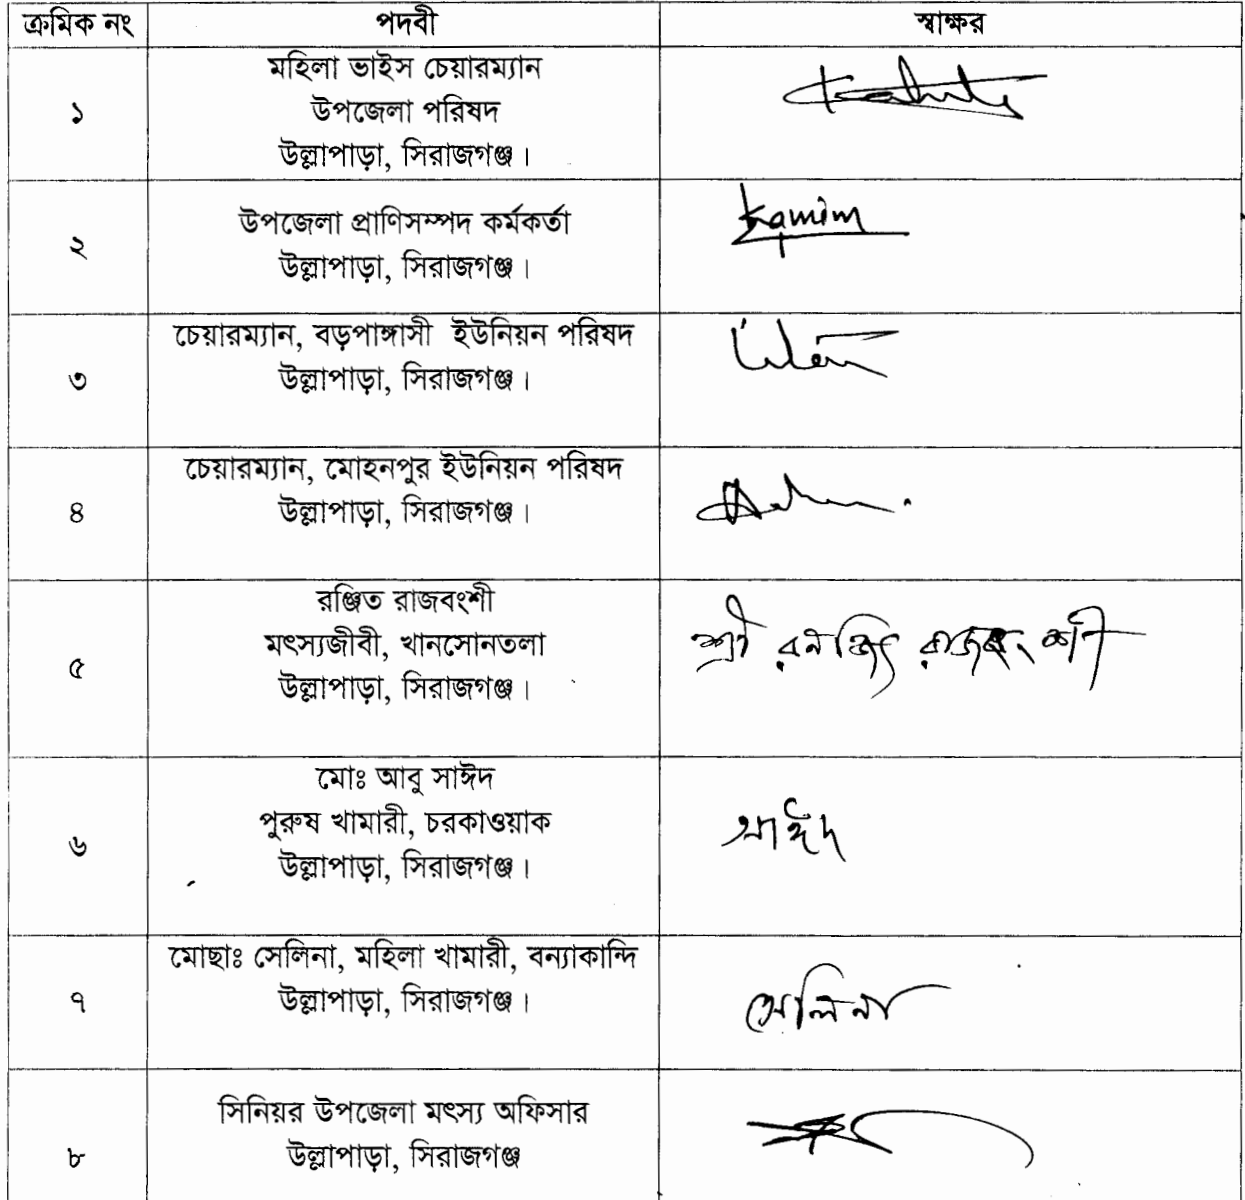 ক্রমিক নং পদবী স্বাক্ষর
মহিলা ভাইস চেয়ারম্যান
১ উপজেলা পরিষদ
উল্লাপাড়া, সিরাজগঞ্জ।
উপজেলা প্রাণিসম্পদ কর্মকর্তা
২ উল্লাপাড়া, সিরাজগঞ্জ।
চেয়ারম্যান, বড়পাঙ্গাসী ইউনিয়ন পরিষদ
৩ উল্লাপাড়া, সিরাজগঞ্জ।
চেয়ারম্যান, মোহনপুর ইউনিয়ন পরিষদ
৪ উল্লাপাড়া, সিরাজগঞ্জ।
রঞ্জিত রাজবংশী
৫ মৎস্যজীবী, খানসোনতলা শ্রী রনজিৎ রাজবংশী
উল্লাপাড়া, সিরাজগঞ্জ।
মোঃ আবু সাঈদ
৬ পুরুষ খামারী, চরকাওয়াক সাঈদ
উল্লাপাড়া, সিরাজগঞ্জ।
মোছাঃ সেলিনা, মহিলা খামারী, বন্যাকান্দি
৭ উল্লাপাড়া, সিরাজগঞ্জ। সেলিনা
সিনিয়র উপজেলা মৎস্য অফিসার
৮ উল্লাপাড়া, সিরাজগঞ্জ